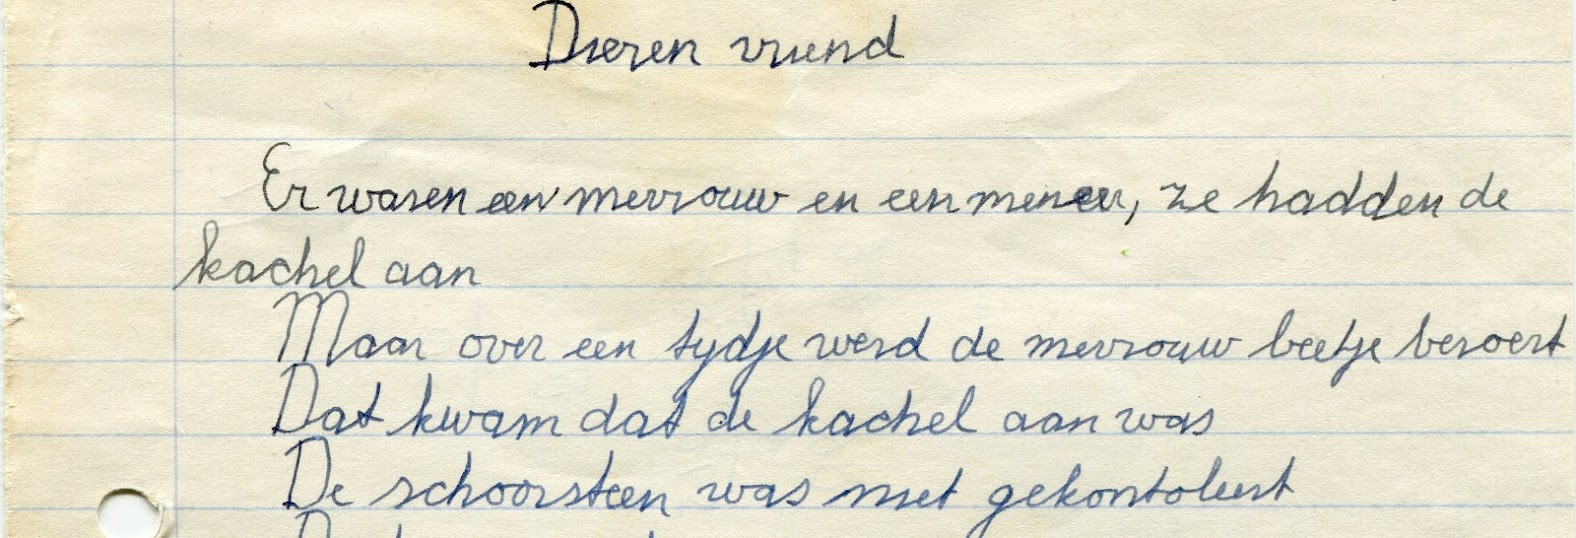 Dieren vriend
Er waren een mevrouw en een meneer, ze hadden de
kachel aan
Maar over een tydje werd de mevrouw beetje beroert
Dat kwam dat de kachel aan was
De schoorsteen was niet gekontoleert